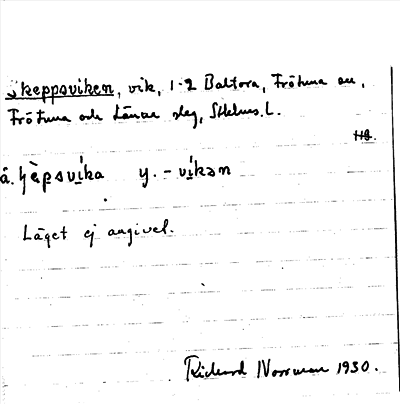 Skeppsviken, vik, 1-2 Baltora, Frötuna sn,
Frötuna och Länna slg, Sthlms. L.
HB.
å. ʃèpsvi̱ka y. -vi̱kan
Läget ej angivet.
Rickard Norrman 1930.